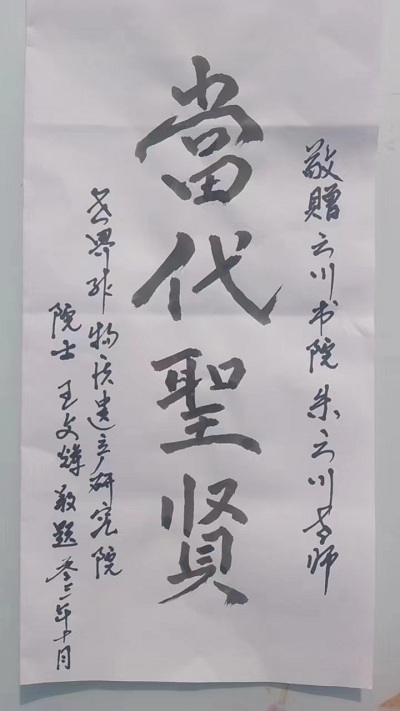 敬赠云川书院朱云川老师
當代聖贤
世界非物质遗产研究院
院士王文敬题年十月